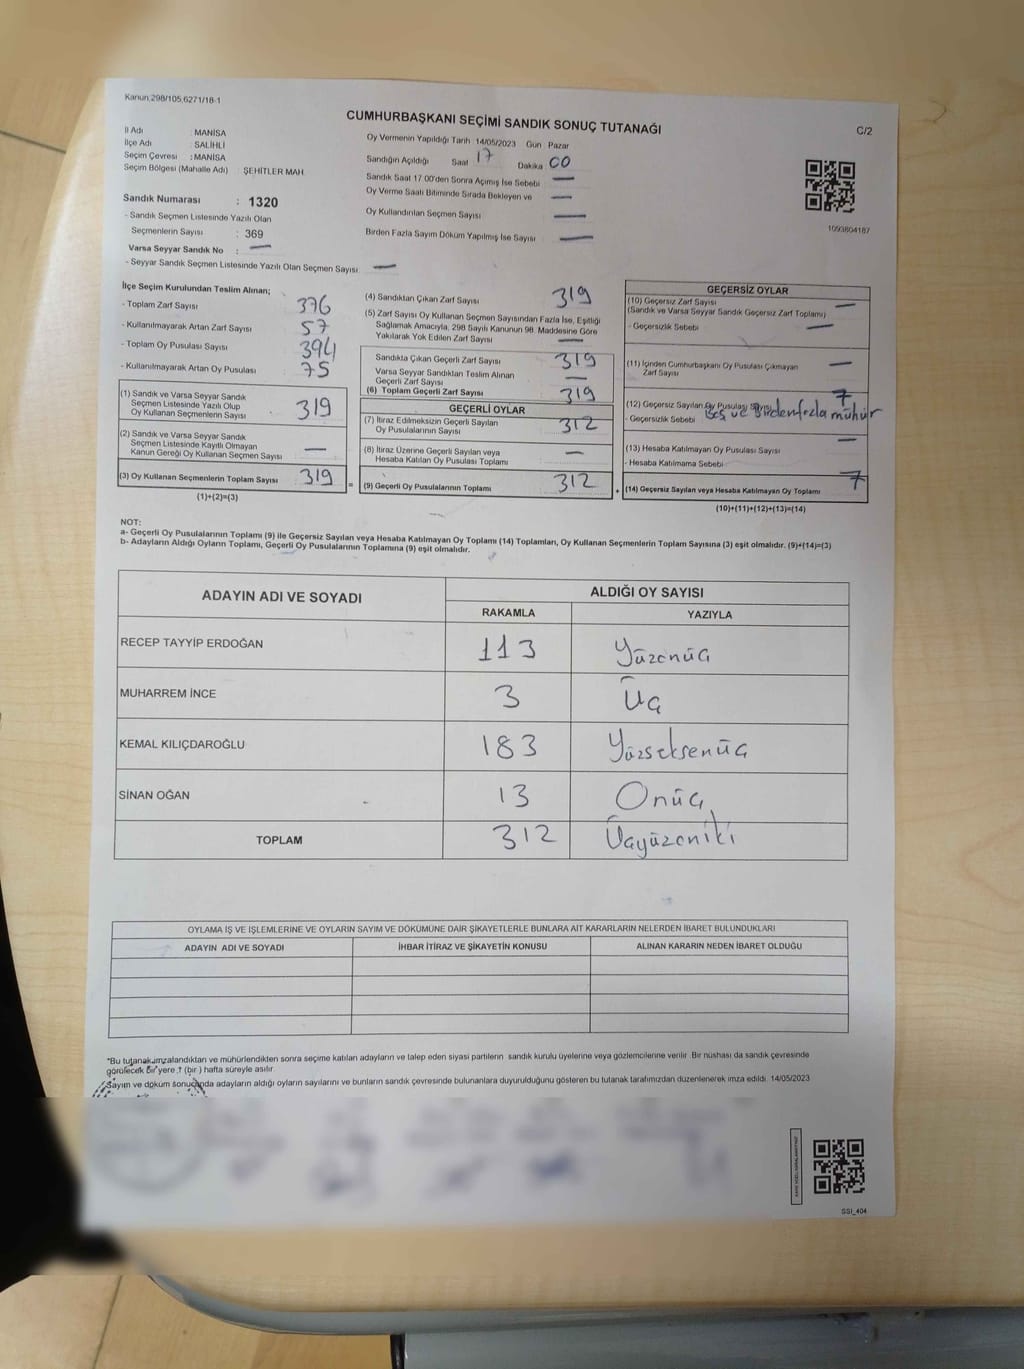 Kanun 298/105,6271/18-1
CUMHURBAŞKANI SEÇİMİ SANDIK SONUÇ TUTANAĞI
C/2
İl Adı : MANİSA
İlçe Adı : SALİHLİ
Seçim Çevresi : MANİSA
Seçim Bölgesi (Mahalle Adı) ŞEHİTLER MAH.
Oy Vermenin Yapıldığı Tarih 14/05/2023 Gün Pazar
Sandığın Açıldığı Saat 17 Dakika 00
Sandık Saat 17 00'den Sonra Açımış İse Sebebi —
Oy Verme Saati Bitiminde Sırada Bekleyen ve —
Oy Kullandırılan Seçmen Sayısı —
Birden Fazla Sayım Döküm Yapılmış İse Sayısı —
1093804187
Sandık Numarası : 1320
- Sandık Seçmen Listesinde Yazılı Olan
Seçmenlerin Sayısı : 369
Varsa Seyyar Sandık No : —
- Seyyar Sandık Seçmen Listesinde Yazılı Olan Seçmen Sayısı: —
İlçe Seçim Kurulundan Teslim Alınan;
- Toplam Zarf Sayısı 376
- Kullanılmayarak Artan Zarf Sayısı 57
- Toplam Oy Pusulası Sayısı 394
- Kullanılmayarak Artan Oy Pusulası 75
(1) Sandık ve Varsa Seyyar Sandık
Seçmen Listesinde Yazılı Olup
Oy Kullanan Seçmenlerin Sayısı 319
(2) Sandık ve Varsa Seyyar Sandık
Seçmen Listesinde Kayıtlı Olmayan
Kanun Gereği Oy Kullanan Seçmen Sayısı —
(3) Oy Kullanan Seçmenlerin Toplam Sayısı 319
(1)+(2)=(3)
=
(4) Sandıktan Çıkan Zarf Sayısı 319
(5) Zarf Sayısı Oy Kullanan Seçmen Sayısından Fazla İse, Eşitliği
Sağlamak Amacıyla, 298 Sayılı Kanunun 98. Maddesine Göre
Yakılarak Yok Edilen Zarf Sayısı —
Sandıkta Çıkan Geçerli Zarf Sayısı 319
Varsa Seyyar Sandıktan Teslim Alınan
Geçerli Zarf Sayısı —
(6) Toplam Geçerli Zarf Sayısı 319
GEÇERLİ OYLAR
(7) İtiraz Edilmeksizin Geçerli Sayılan
Oy Pusulalarının Sayısı 312
(8) İtiraz Üzerine Geçerli Sayılan veya
Hesaba Katılan Oy Pusulası Toplamı —
(9) Geçerli Oy Pusulalarının Toplamı 312
+
GEÇERSİZ OYLAR
(10) Geçersiz Zarf Sayısı —
(Sandık ve Varsa Seyyar Sandık Geçersiz Zarf Toplamı)
- Geçersizlik Sebebi —
(11) İçinden Cumhurbaşkanı Oy Pusulası Çıkmayan
Zarf Sayısı —
(12) Geçersiz Sayılan Oy Pusulası Sayısı 7
- Geçersizlik Sebebi Boş ve Birdenfazla mühür
(13) Hesaba Katılmayan Oy Pusulası Sayısı —
- Hesaba Katılmama Sebebi
(14) Geçersiz Sayılan veya Hesaba Katılmayan Oy Toplamı 7
(10)+(11)+(12)+(13)=(14)
NOT:
a- Geçerli Oy Pusulalarının Toplamı (9) ile Geçersiz Sayılan veya Hesaba Katılmayan Oy Toplamı (14) Toplamları, Oy Kullanan Seçmenlerin Toplam Sayısına (3) eşit olmalıdır. (9)+(14)=(3)
b- Adayların Aldığı Oyların Toplamı, Geçerli Oy Pusulalarının Toplamına (9) eşit olmalıdır.
ADAYIN ADI VE SOYADI
ALDIĞI OY SAYISI
RAKAMLA YAZIYLA
RECEP TAYYİP ERDOĞAN 113 Yüzonüç
MUHARREM İNCE 3 Üç
KEMAL KILIÇDAROĞLU 183 Yüzseksenüç
SİNAN OĞAN 13 Onüç
TOPLAM 312 Üçyüzoniki
OYLAMA İŞ VE İŞLEMLERİNE VE OYLARIN SAYIM VE DÖKÜMÜNE DAİR ŞİKAYETLERLE BUNLARA AİT KARARLARIN NELERDEN İBARET BULUNDUKLARI
ADAYIN ADI VE SOYADI İHBAR İTİRAZ VE ŞİKAYETİN KONUSU ALINAN KARARIN NEDEN İBARET OLDUĞU
*Bu tutanak imzalandıktan ve mühürlendikten sonra seçime katılan adayların ve talep eden siyasi partilerin sandık kurulu üyelerine veya gözlemcilerine verilir. Bir nüshası da sandık çevresinde
görülecek bir yere 1 (bir ) hafta süreyle asılır.
Sayım ve döküm sonucunda adayların aldığı oyların sayılarını ve bunların sandık çevresinde bulunanlara duyurulduğunu gösteren bu tutanak tarafımızdan düzenlenerek imza edildi. 14/05/2023
SSI_404